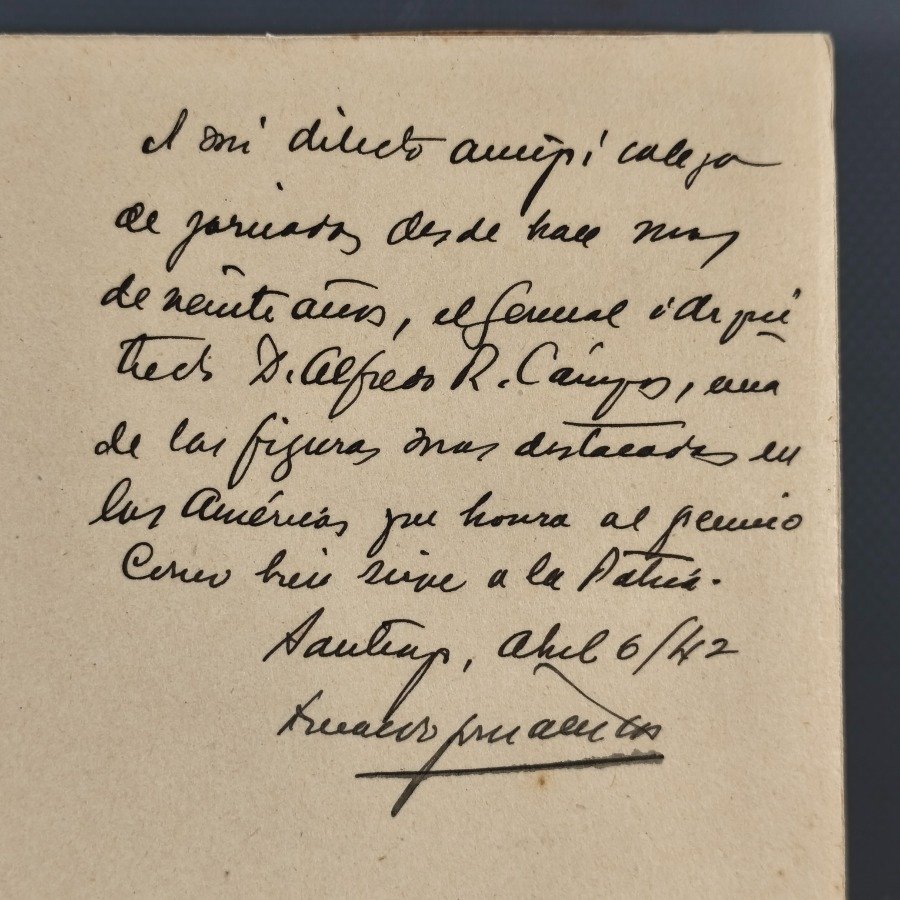 A mi dilecto amigo i colega
de jornadas desde hace mas
de veinte años, el General i Arqui
tecto D. Alfredo R. Cámpos, una
de las figuras mas destacadas en
las Américas que honra al gremio
Como bien sirve a la Patria.
Santiago, Abril 6/42